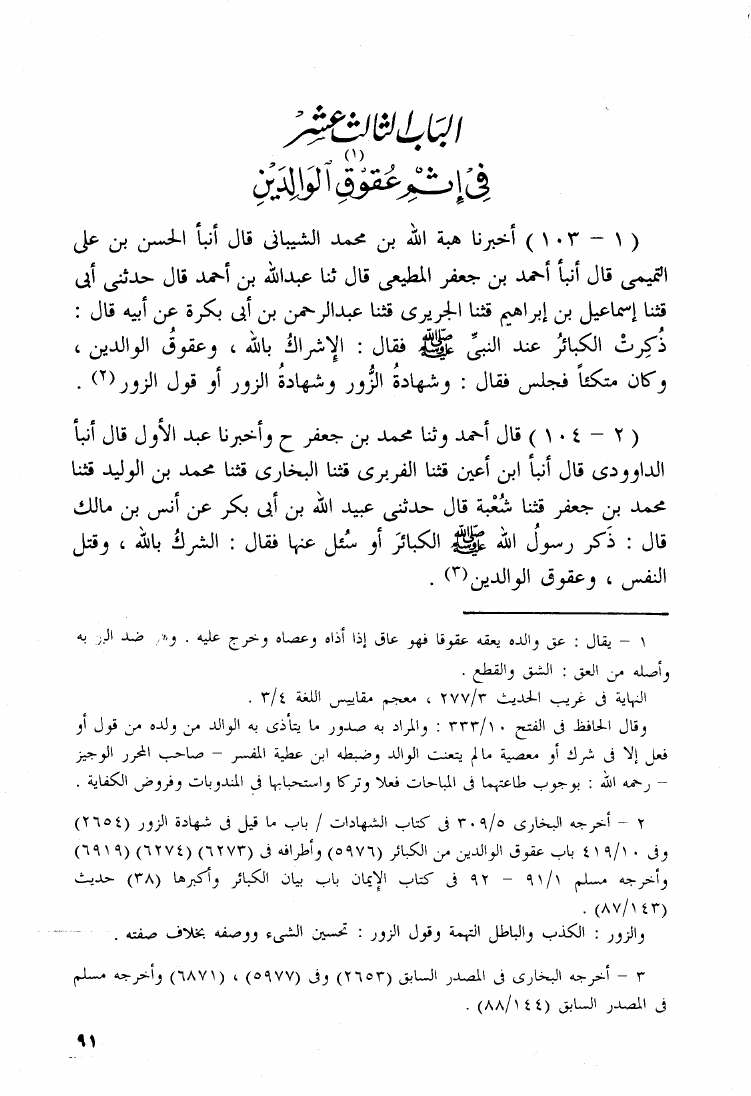 الباب الثالث عشر
في إثم عقوق الوالدين (١)
( ١ – ١٠٣ ) أخبرنا هبة الله بن محمد الشيبانى قال أنبأ الحسن بن على
التميمى قال أنبأ أحمد بن جعفر المطيعى قال ثنا عبدالله بن أحمد قال حدثنى أبى
قثنا إسماعيل بن إبراهيم قثنا الجريرى قثنا عبدالرحمن بن أبى بكرة عن أبيه قال :
ذُكِرتْ الكبائرُ عند النبيِّ ﷺ فقال : الإشراكُ بالله ، وعقوقُ الوالدين ،
وكان متكئاً فجلس فقال : وشهادةُ الزُّور وشهادةُ الزور أو قول الزور(٢) .
( ٢ – ١٠٤ ) قال أحمد وثنا محمد بن جعفر ح وأخبرنا عبد الأول قال أنبأ
الداوودى قال أنبأ ابن أعين قثنا الفربرى قثنا البخارى قثنا محمد بن الوليد قثنا
محمد بن جعفر قثنا شُعْبة قال حدثنى عبيد الله بن أبى بكر عن أنس بن مالك
قال : ذَكر رسولُ الله ﷺ الكبائرَ أو سُئل عنها فقال : الشركُ بالله ، وقتل
النفس ، وعقوق الوالدين(٣) .
١ – يقال : عق والده يعقه عقوقا فهو عاق إذا أذاه وعصاه وخرج عليه . وهو ضد البر به
وأصله من العق : الشق والقطع .
النهاية فى غريب الحديث ٢٧٧/٣ ، معجم مقاييس اللغة ٣/٤ .
وقال الحافظ فى الفتح ٣٣٣/١٠ : والمراد به صدور ما يتأذى به الوالد من ولده من قول أو
فعل إلا فى شرك أو معصية مالم يتعنت الوالد وضبطه ابن عطية المفسر – صاحب المحرر الوجيز
– رحمه الله : بوجوب طاعتهما فى المباحات فعلا وتركا واستحبابها فى المندوبات وفروض الكفاية .
٢ – أخرجه البخارى ٣٠٩/٥ فى كتاب الشهادات / باب ما قيل فى شهادة الزور (٢٦٥٤)
وفى ٤١٩/١٠ باب عقوق الوالدين من الكبائر (٥٩٧٦) وأطرافه فى (٦٢٧٣) (٦٢٧٤) (٦٩١٩)
وأخرجه مسلم ٩١/١ – ٩٢ فى كتاب الإيمان باب بيان الكبائر وأكبرها (٣٨) حديث
(٨٧/١٤٣) .
والزور : الكذب والباطل التهمة وقول الزور : تحسين الشىء ووصفه بخلاف صفته .
٣ – أخرجه البخارى فى المصدر السابق (٢٦٥٣) وفى (٥٩٧٧) ، (٦٨٧١) وأخرجه مسلم
فى المصدر السابق (٨٨/١٤٤) .
٩١